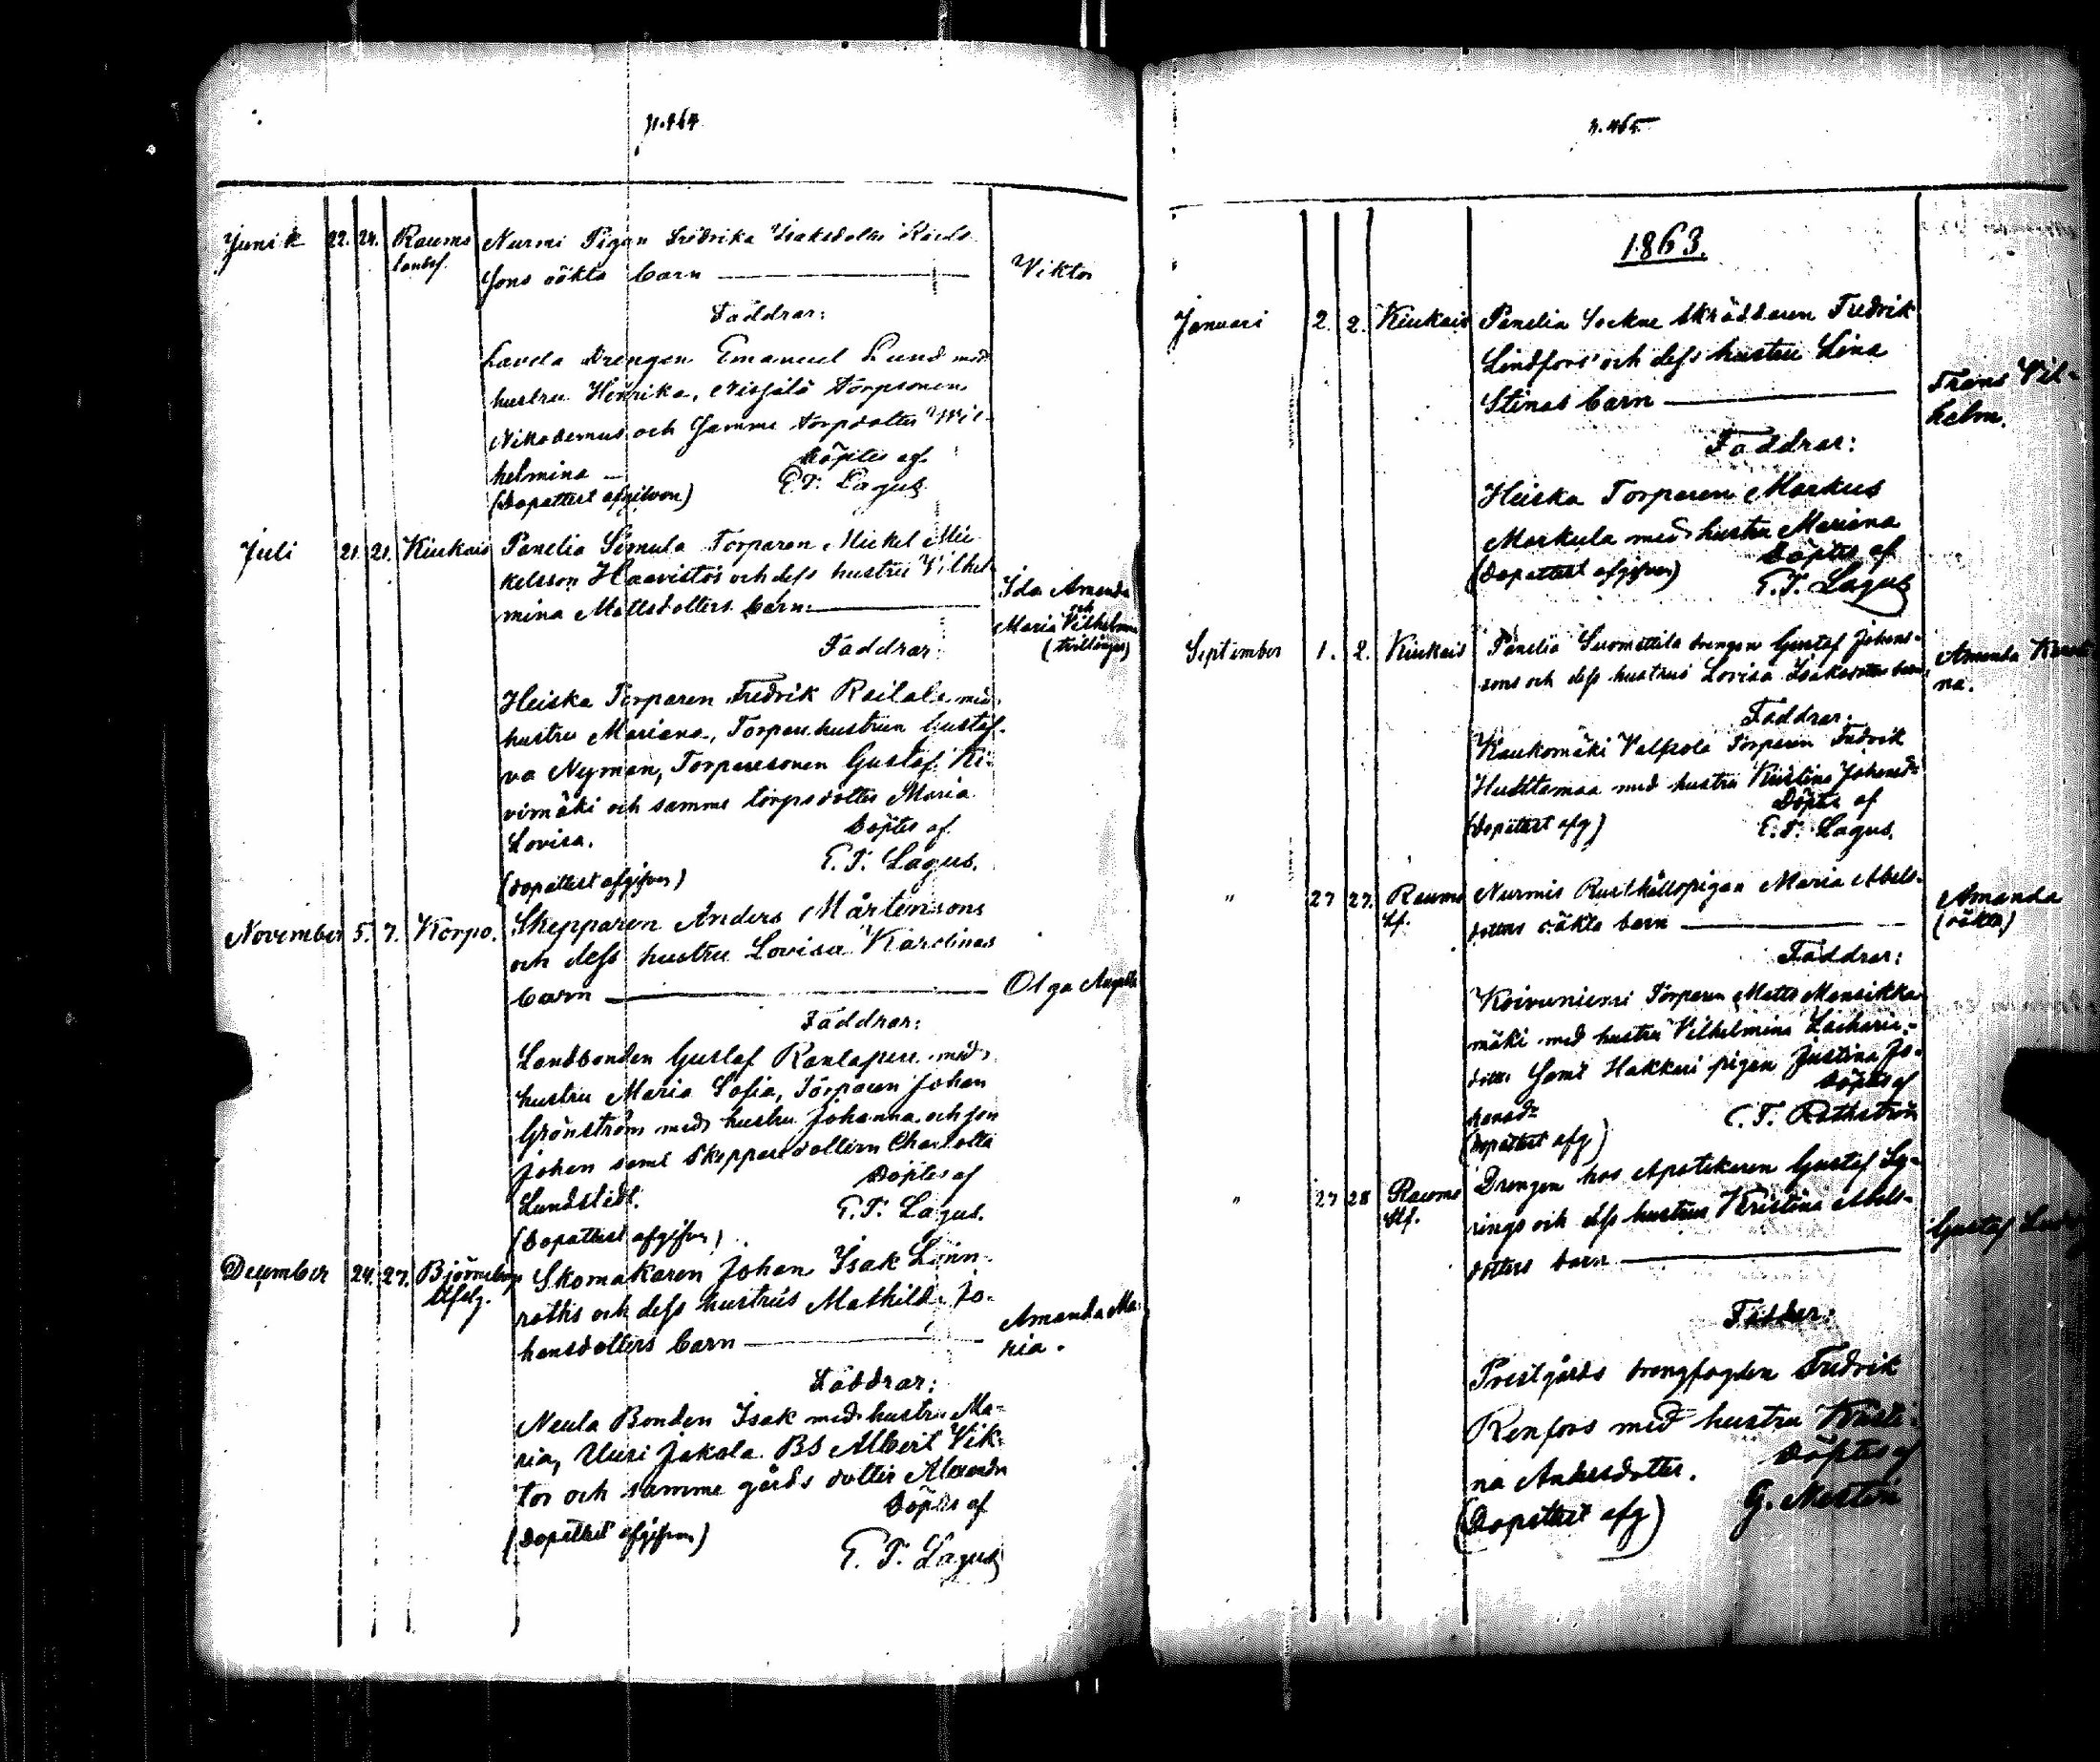 p. 464
Junii 22. 24. Raumo Nurmi Pigan Fredrika Isaksdotter
Landsf. sons oäkta barn — Viktor
Faddrar:
Lavela drengen Emanuel Lund med
hustru Henrika, torpsonen
Nikodemus och samme torpsdotter Wil-
helmina — Döptes af
(Dopattest afgifven) E. T. Lagus
Juli 21. 21. Kiukais Panelia Simula Torparen Mickel Mic-
kelsson Haavistos och dess hustru Vilhel-
mina Mattsdotters barn — Ida Amanda
och
Maria Vilhelmina
(tvillingar)
Faddrar:
Heiska Torparen Fredrik Raitala med
hustru Mariana, Torpare hustrun Gustaf-
va Nyman, Torparesonen Gustaf Ki-
vimäki och samme torps dotter Maria
Lovisa. Döptes af
(dopattest afgifven) E. T. Lagus.
November 5. 7. Korpo. Skepparen Anders Mårtensons
och dess hustru Lovisa Karolinas
barn — Olga Augusta
Faddrar:
Landbonden Gustaf Rantapere med
hustru Maria Sofia, Torparen Johan
Grönström med hustru Johanna och son
Johan samt Skepparedottern Charlotta
Lundstedt. Döptes af
(Dopattest afgifven) E. T. Lagus.
December 24. 27. Björneborgs Skomakaren Johan Isak Linn-
stfslg. roths och dess hustrus Mathilda Jo-
hansdotters barn — Amanda Ma-
ria.
Faddrar:
Neula Bonden Isak med hustru Ma-
ria, Uusi Jakala BS Albert Vik-
tor och samme gårds dotter Alexandra
Döptes af
(Dopattest afgifven) E. T. Lagus
p. 465
1863.
Januari 2. 2. Kiukais Panelia Sockne skräddaren Fredrik
Lindfors och dess hustru Lina
Stinas barn — Frans Vil-
helm.
Faddrar:
Heiska Torparen Markus
Markula med hustru Mariana
Döptes af
(dopattest afgifven) E. T. Lagus
September 1. 2. Kiukais Panelia Suomattila drengen Gustaf Johans-
sons och dess hustrus Lovisa Isaksdotters barn Amanda Kristi-
na.
Faddrar:
Kaukomäki Valkola Torparen Fredrik
Huhttamaa med hustru Kristina Johansd:
Döptes af
(Dopattest afg) E. T. Lagus.
" 27 27. Raumo Nurmis Rusthållspigan Maria Abels-
Lf. dotters oäkta barn — Amanda
(oäkta)
Faddrar:
Koivuniemi Torparen Matts Mansikka-
mäki med hustru Vilhelmina Zacharie-
dotter samt Hakkari pigan Justina Jo-
hansd: Döptes af
(Dopattest afg) C. T. Rothström
" 27 28 Raumo Drengen hos Apotekaren Gustaf Sy-
Stf. rings och dess hustrus Kristina Abels-
dotters barn — Gustaf
Fadder:
Prestgårds drengfogden Fredrik
Renfors med hustru Kristi-
na Andersdotter. Döptes af
(Dopattest afg) G. Nestin